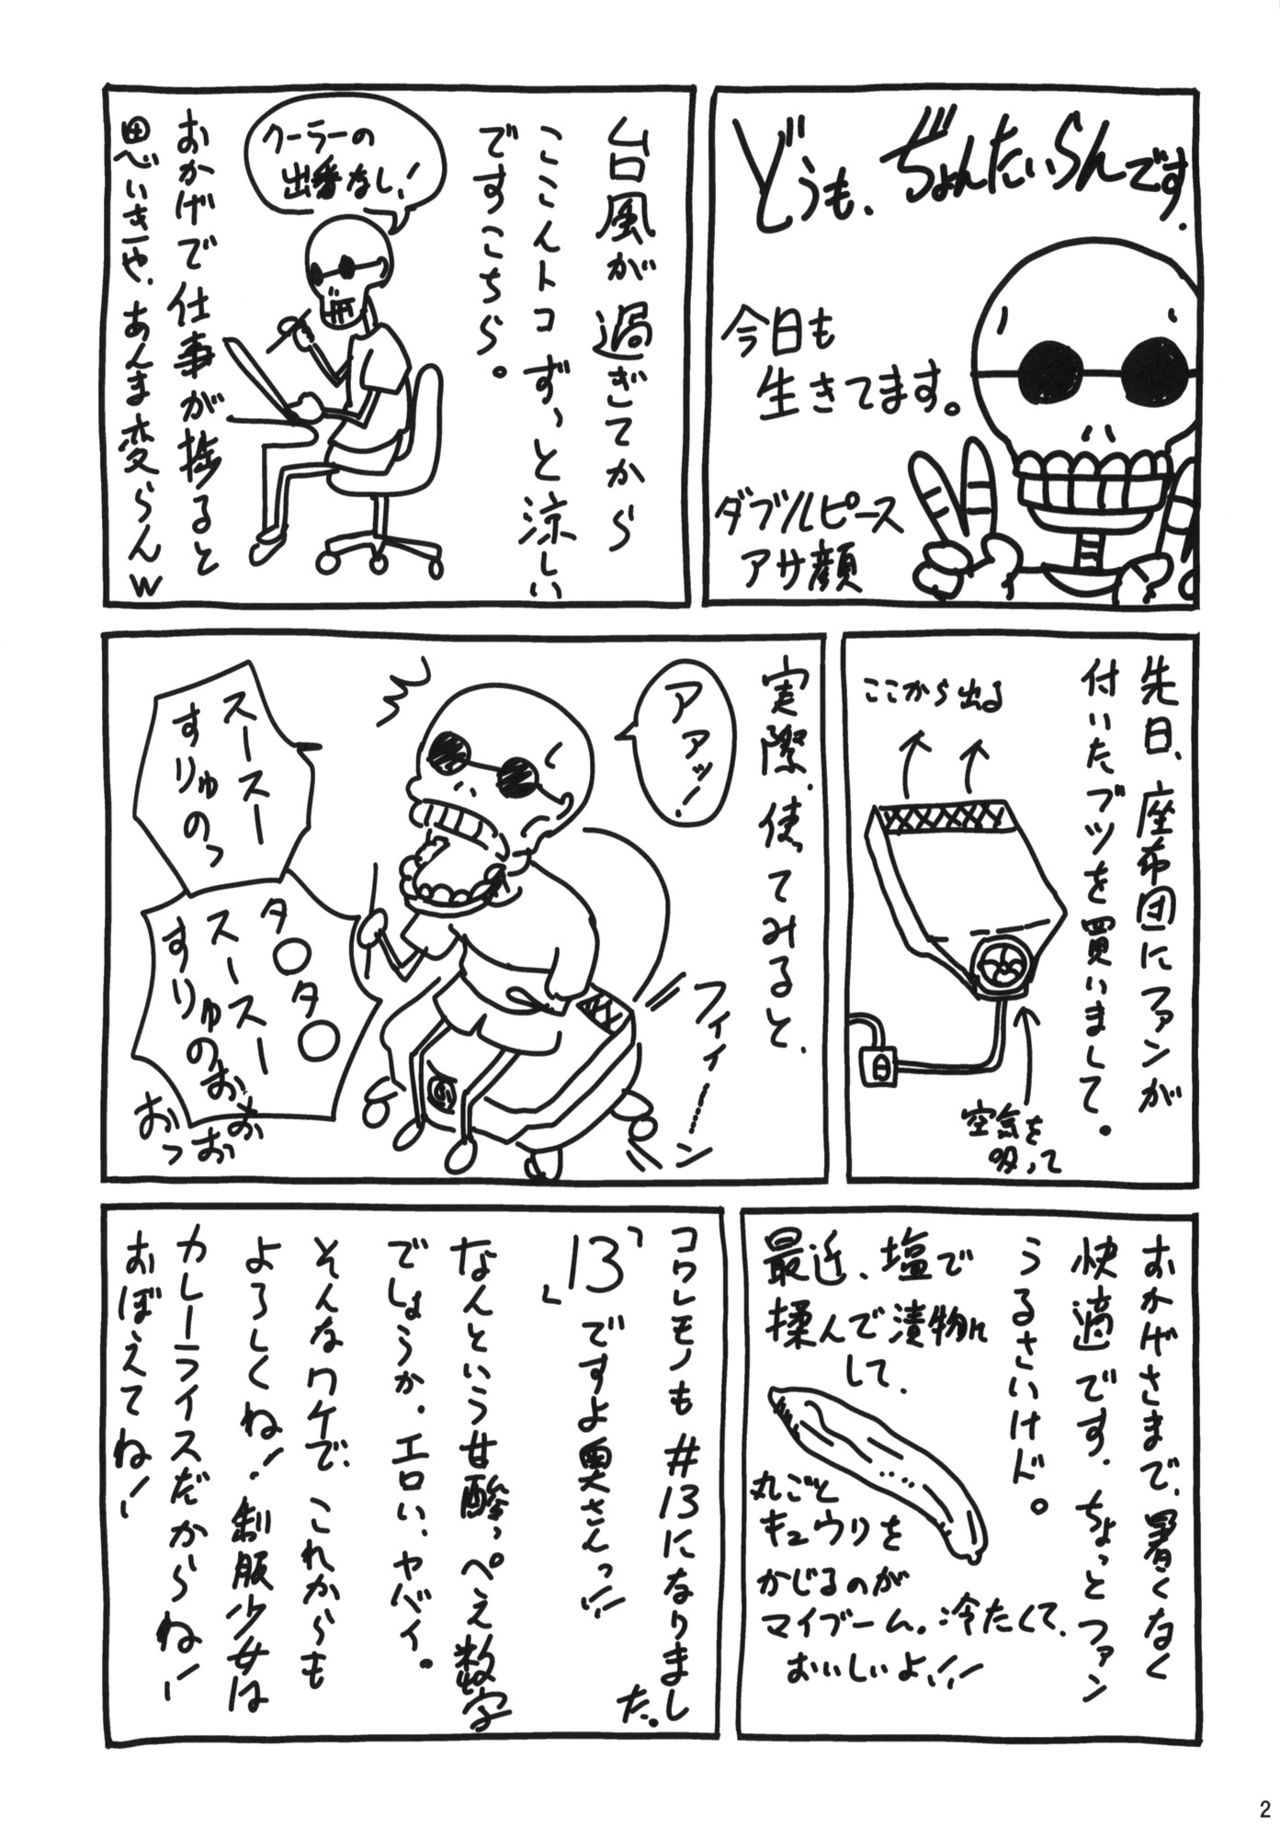 どうも、ぢょんたいらんです。
今日も
生きてます。
ダブルピース
アサ顔
台風が過ぎてから
ここんトコずっと涼しい
ですこちら。
クーラーの
出番なし！
おかげで仕事が捗ると
思いきや、あんま変らんw
先日、座布団にファンが
付いたブツを買いまして。
ここから出る
空気を
吸って
実際、使ってみると、
アアッ！
フィィーーン
スースー
すりゅのっ
タ○タ○
スースー
すりゅのおおおおおっ
おかげさまで、暑くなく
快適です。ちょっとファン
うるさいけど。
最近、塩で
揉んで漬物に
して、
丸ごと
キュウリを
かじるのが
マイブーム。冷たくて、
おいしいよ!!
コワレモノも#13になりまし
た。
「13」ですよ奥さんっ!!
なんという甘酸っぺえ数字
でしょうか。エロい、ヤバイ。
そんなワケで、これからも
よろしくね！制服少女は
カレーライスだからね！
おぼえてね！
2